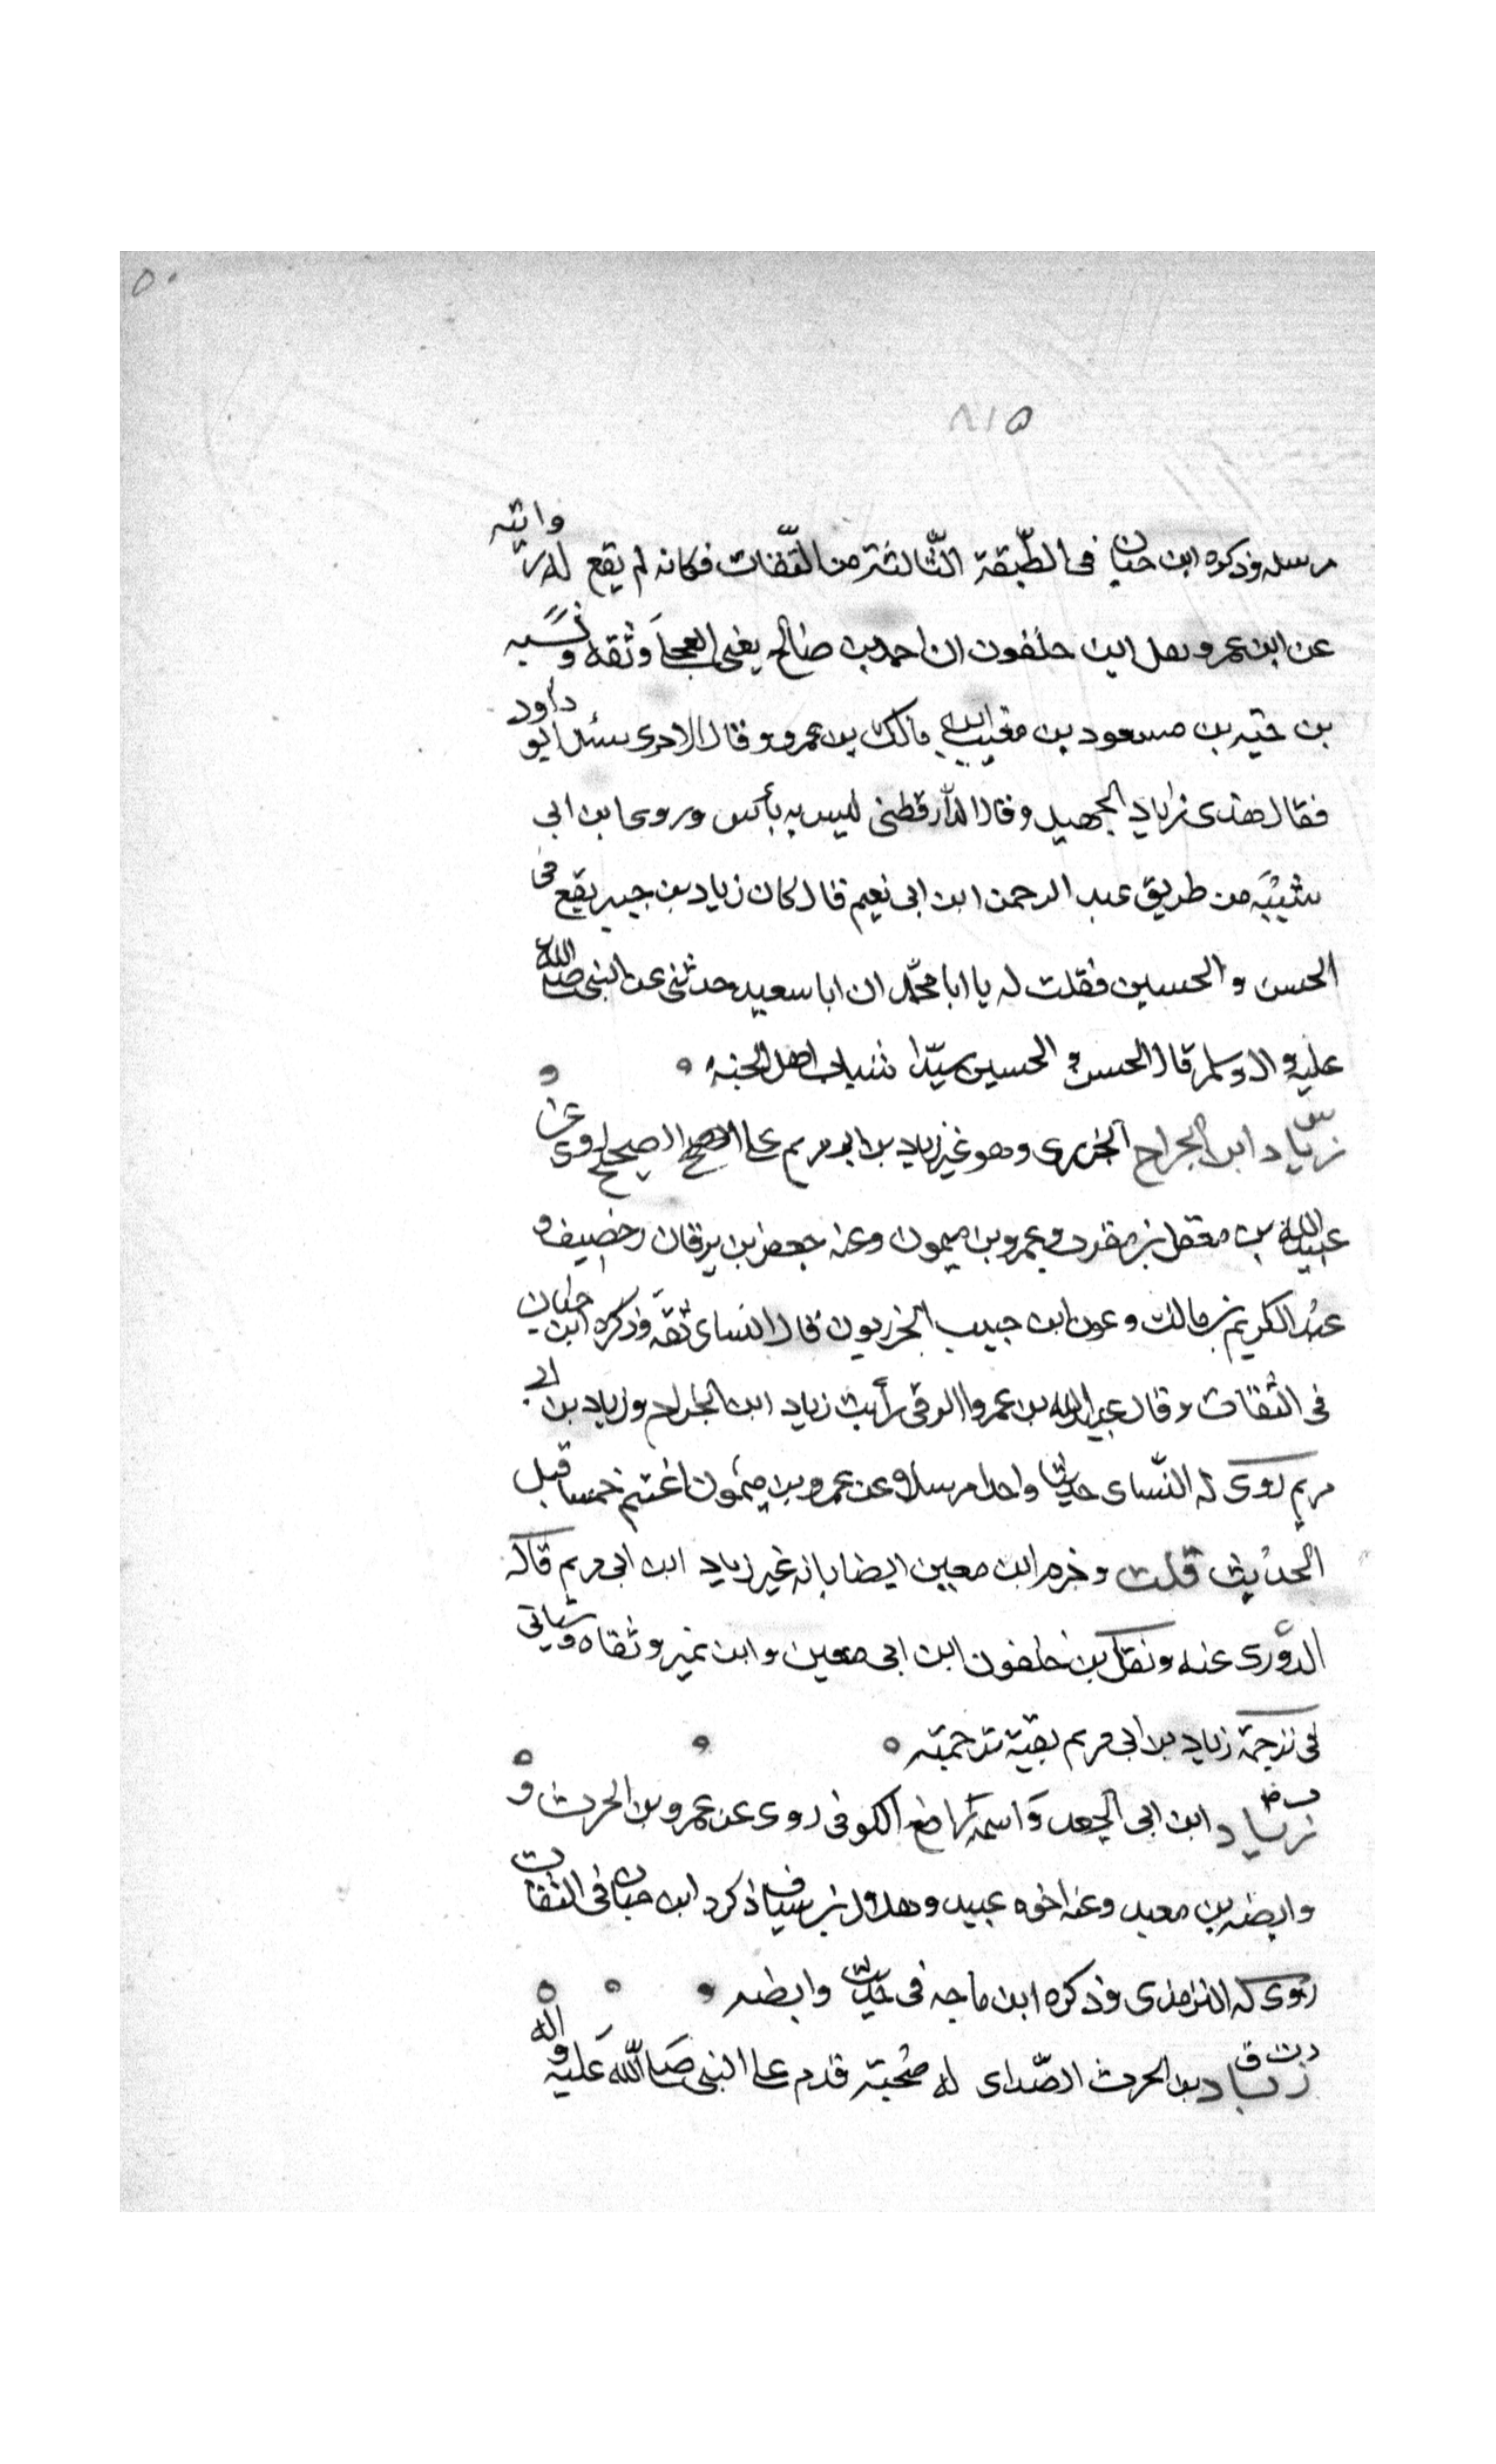 ٥٠
٨١٥
مرسله وذكره ابن حبان فى الطّبقة الثّالثة من الثّقات فكانه لم يقع له روايته
عن ابن عمر ونقل ابن خلفون ان احمد بن صالح يعنى العجلى وثقه ونسبه
بن حيه بن مسعود بن معتب بن مالك بن عمرو وقال الاجرى سئل ابو داود
فقال هذى زياد الجهبد وقال الدّارقطنى ليس به بأس وروى ابن ابى
شيبه من طريق عبد الرحمن ابن ابى نعيم قال كان زياد بن جبير يقع فى
الحسن والحسين فقلت له يا ابا محمّد ان ابا سعيد حدثنى عن النبى صلى الله
عليه واله وسلم قال الحسن والحسين سيّدا شباب اهل الجنه
س
زياد ابن الجراح الجزرى وهو غير زياد بن ابى مريم على الاصح الصحيح روى عن
عبيد الله بن معقل بن مقرن وعمرو بن ميمون وعنه جعفر بن برقان وخصيف و
عبد الكريم بن مالك وعون ابن حبيب الجزريون قال النساى ثقه وذكره ابن حبان
فى الثقات وقال عبيد الله بن عمرو الرقى رأيت زياد ابن الجراح وزياد بن ابى
مريم روى له النّساى حديثا واحدا مرسلا عن عمرو بن ميمون اغتنم خمسا قبل
الحديث قلت وجزم ابن معين ايضا بانه غير زياد ابن ابى مريم قاله
الدورى عنه ونقل بن خلفون ابن ابى معين وابن نمير وثقاه وسياتى
فى ترجمة زياد بن ابى مريم بقية ترجمته
زياد ابن ابى الجعد واسمه رافع الكوفى روى عن عمرو بن الحرث و
وابصه بن معبد وعنه اخوه عبيد وهلال بن يساف ذكره ابن حبان فى الثقات
روى له الترمذى وذكره ابن ماجه فى حديث وابصه
د ت ق
زياد بن الحرث الصّداى له صُحبته قدم على النبى صلى الله عليه واله